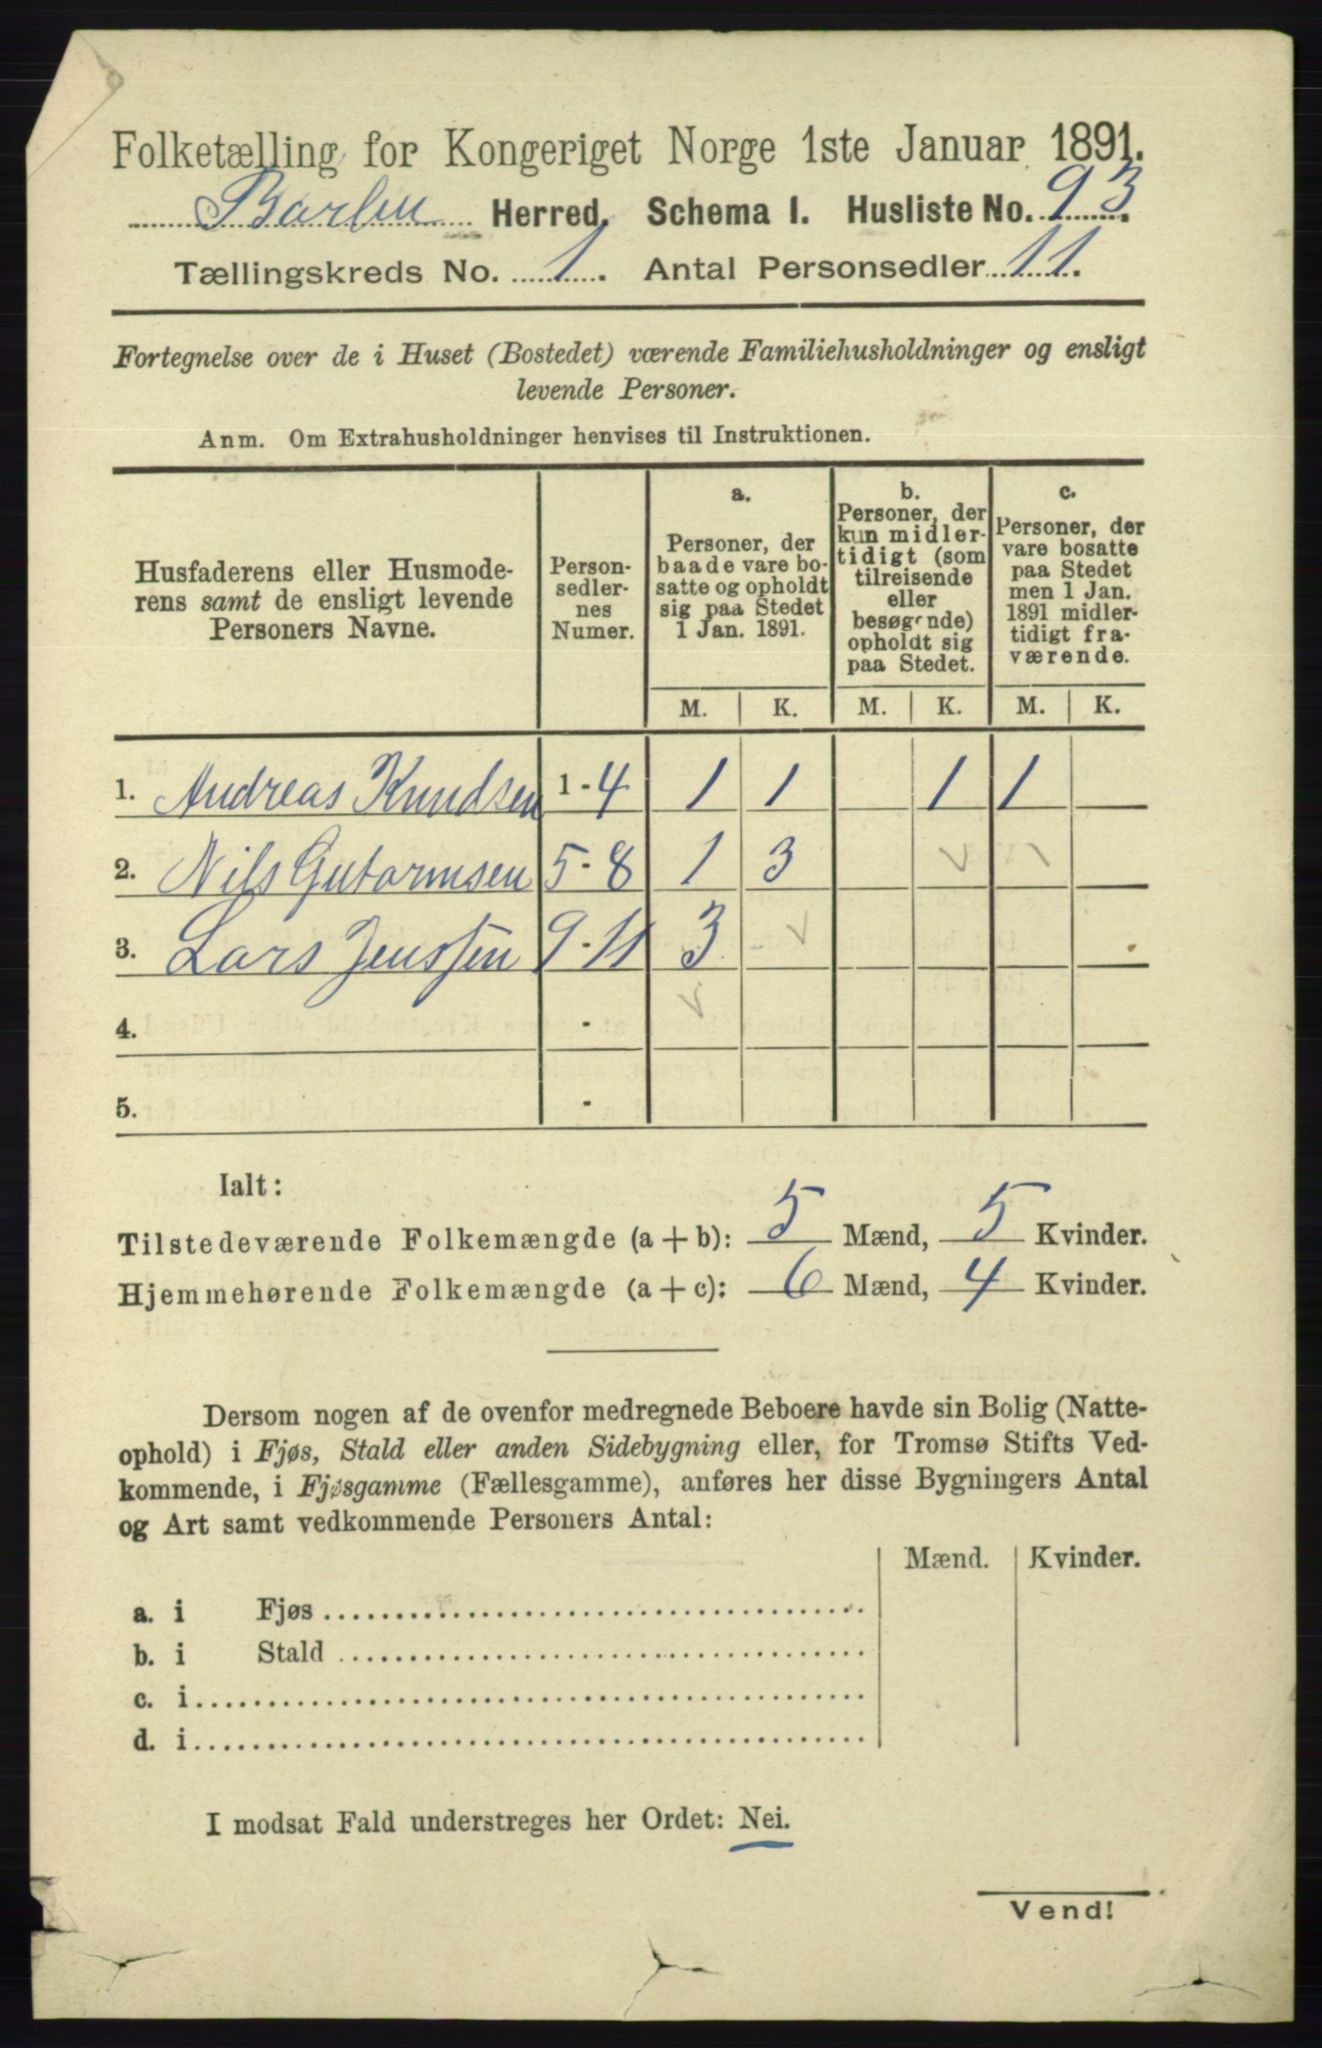 Folketælling for Kongeriget Norge 1ste Januar 1891.
Barbu Herred. Schema I. Husliste No. 93.
Tællingskreds No. 1. Antal Personsedler 11.
Fortegnelse over de i Huset (Bostedet) værende Familiehusholdninger og ensligt
levende Personer.
Anm. Om Extrahusholdninger henvises til Instruktionen.
Husfaderens eller Husmode-
rens samt de ensligt levende
Personers Navne.
Person-
sedler-
nes
Numer.
a.
Personer, der
baade vare bo-
satte og opholdt
sig paa Stedet
1 Jan. 1891.
b.
Personer, der
kun midler-
tidigt (som
tilreisende
eller
besøgende)
opholdt sig
paa Stedet.
c.
Personer, der
vare bosatte
paa Stedet
men 1 Jan.
1891 midler-
tidigt fra-
værende.
M. K. M. K. M. K.
1. Andreas Knudsen 1-4 1 1 1 1
2. Nils Gutormsen 5-8 1 3
3. Lars Jenssen 9-11 3 -
4. -
5. -
Ialt:
Tilstedeværende Folkemængde (a + b): 5 Mænd, 5 Kvinder.
Hjemmehørende Folkemængde (a + c): 6 Mænd, 4 Kvinder.
Dersom nogen af de ovenfor medregnede Beboere havde sin Bolig (Natte-
ophold) i Fjøs, Stald eller anden Sidebygning eller, for Tromsø Stifts Ved-
kommende, i Fjøsgamme (Fællesgamme), anføres her disse Bygningers Antal
og Art samt vedkommende Personers Antal:
Mænd. Kvinder.
a. i Fjøs
b. i Stald
c. i
d. i
I modsat Fald understreges her Ordet: Nei.
Vend!